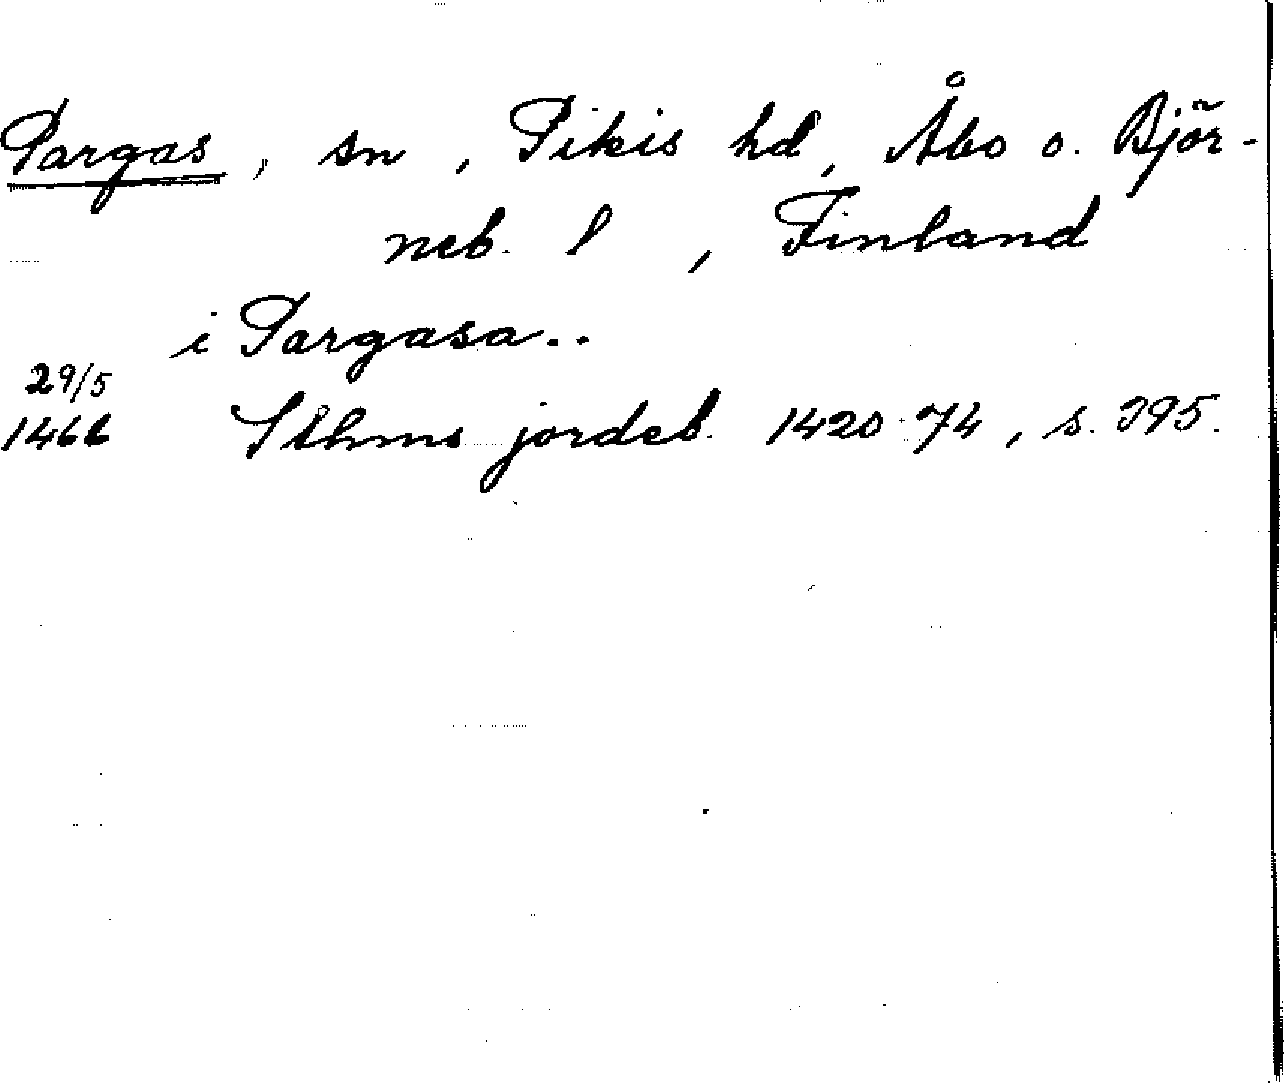 Pargas, sn, Pikis hd, Åbo o. Björ-
neb. l, Finland
i Pargasa..
29/5
1466 Sthms jordeb. 1420-74, s. 395.